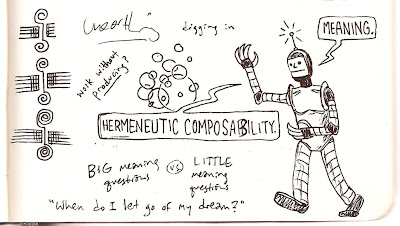 digging in
MEANING.
work without
producing?
HERMENEUTIC COMPOSABILITY.
BIG meaning
questions
VS
LITTLE
meaning
questions
"When do I let go of my dream?"